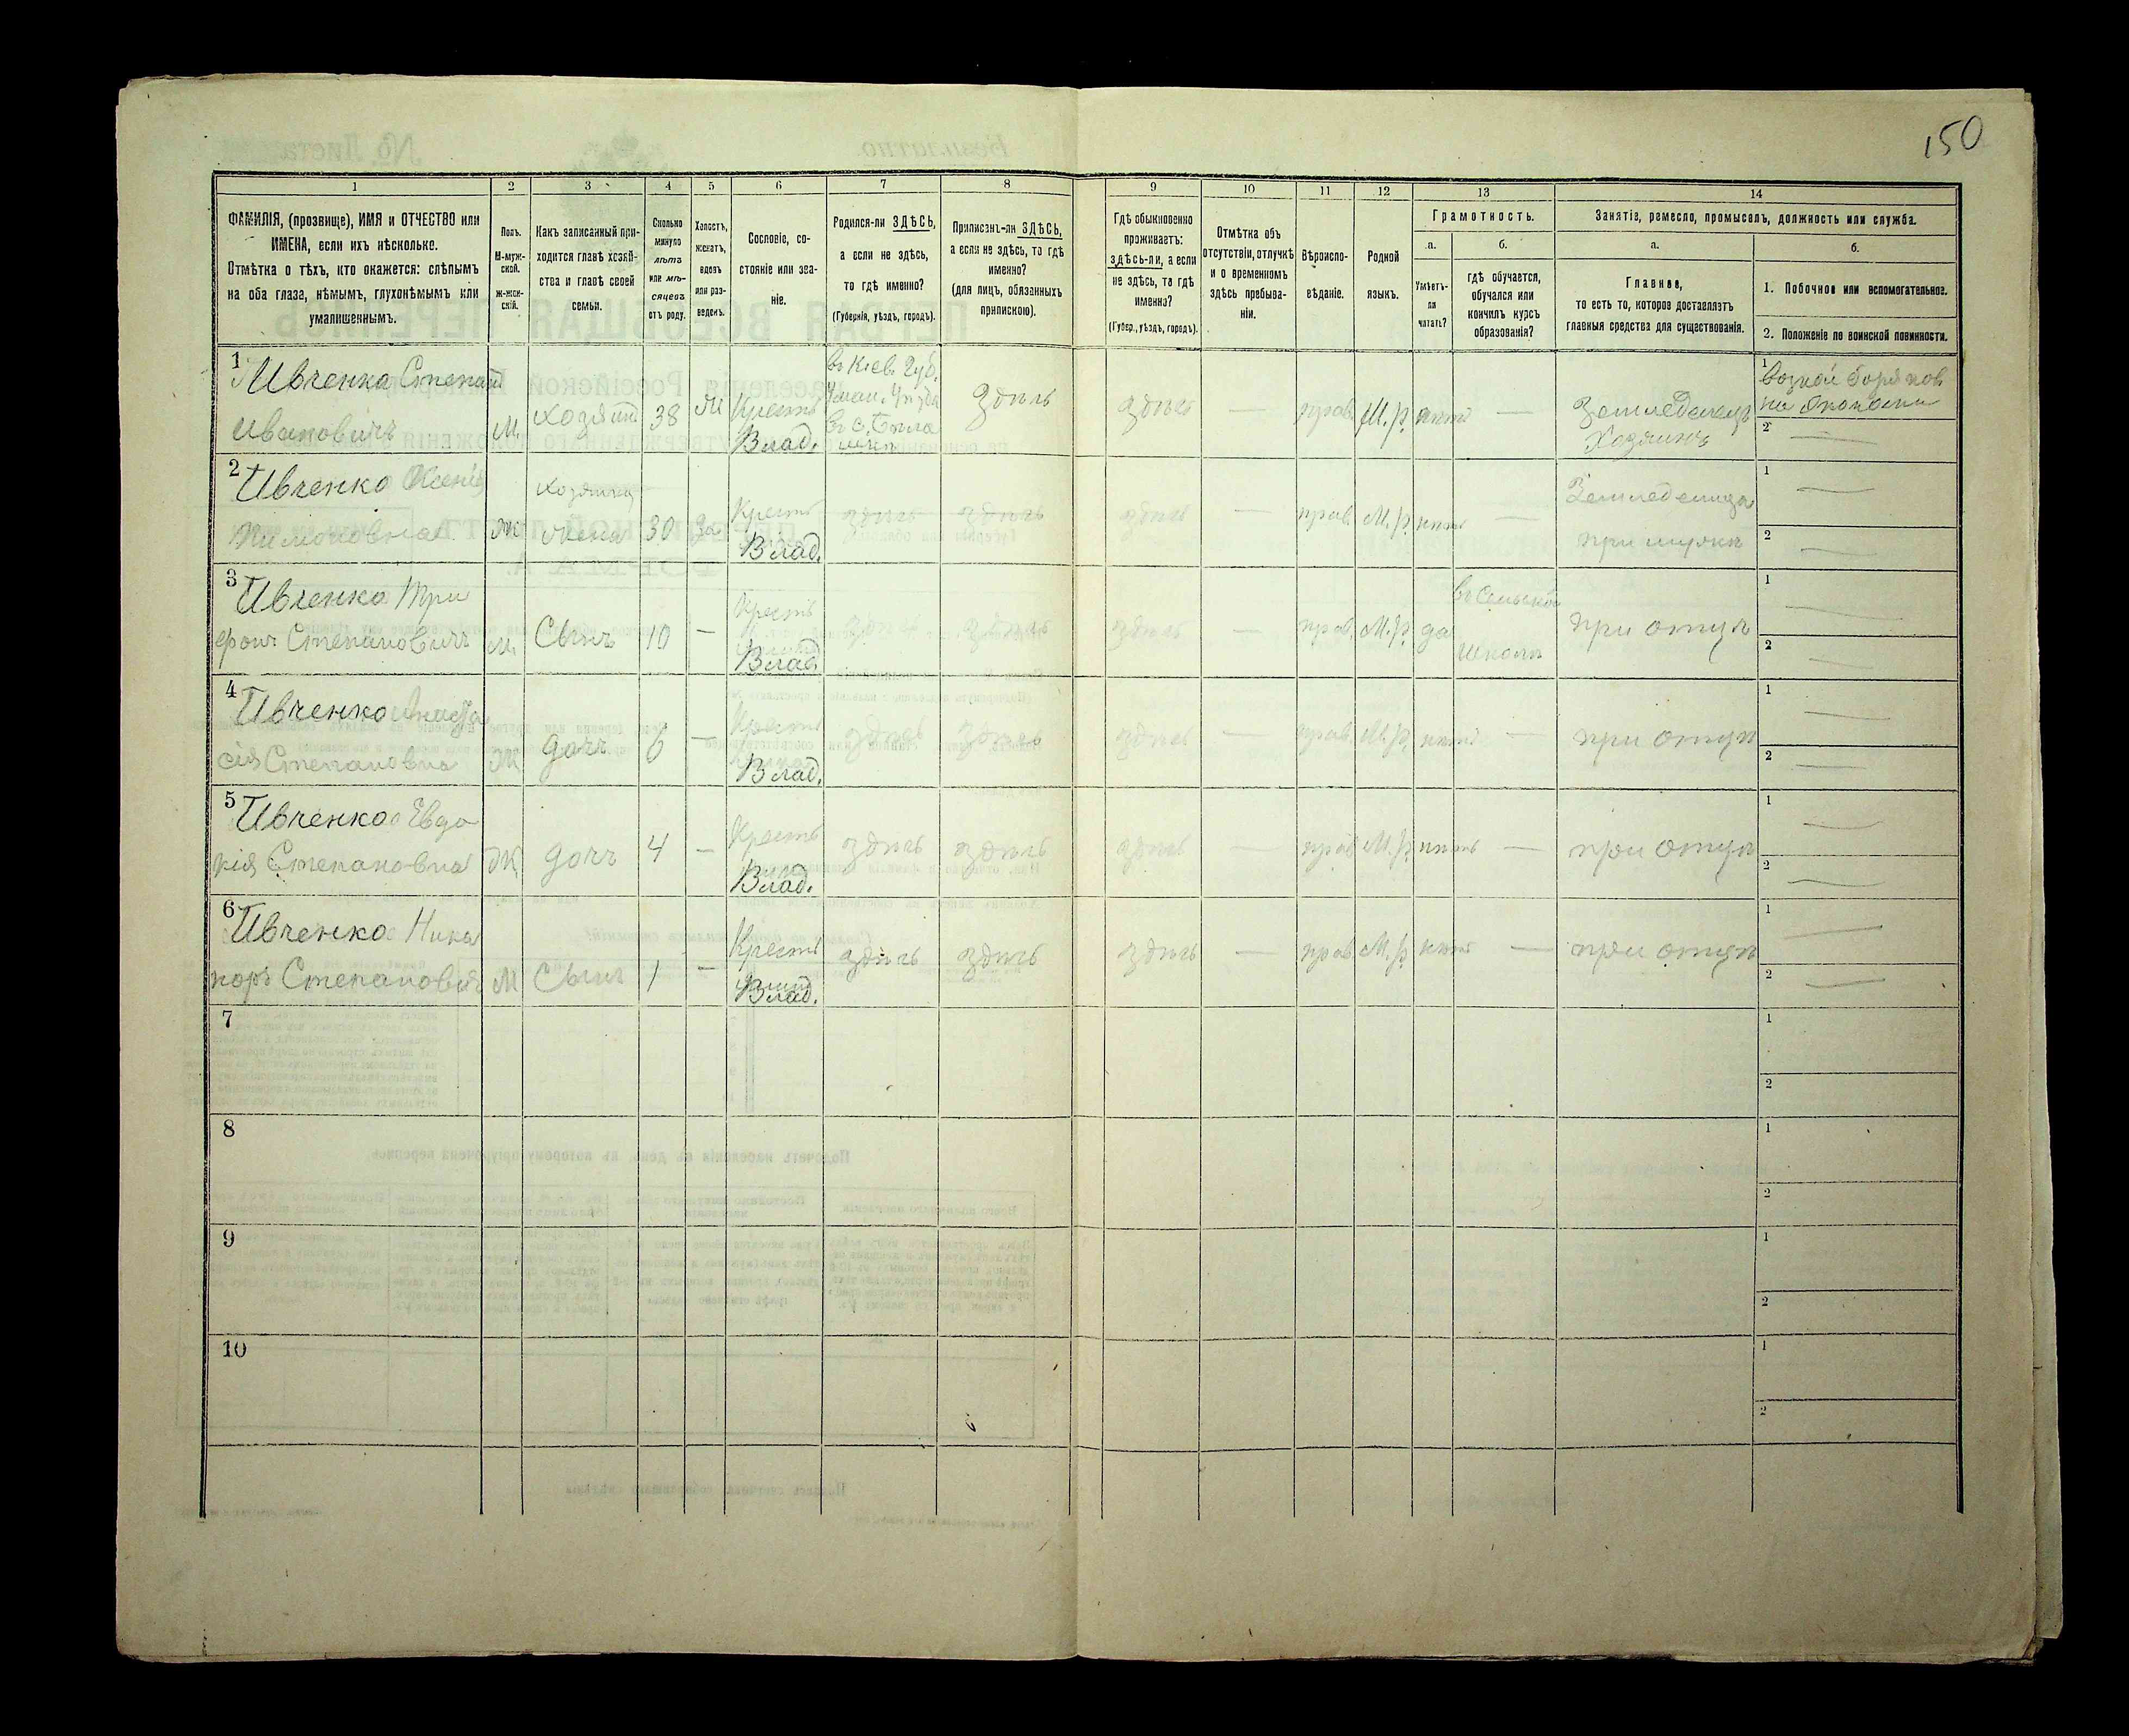 150
1 2 3 4 5 6 7 8 9 10 11 12 13 14
ФАМИЛІЯ, (прозвище), ИМЯ и ОТЧЕСТВО или
ИМЕНА, если ихъ нѣсколько.
Отмѣтка о тѣхъ, кто окажется: слѣпымъ
на оба глаза, нѣмымъ, глухонѣмымъ или
умалишеннымъ.
Полъ.
М-муж-
ской.
ж-жен-
скій.
Какъ записанный при-
ходится главѣ хозяй-
ства и главѣ своей
семьи.
Сколько
минуло
лѣтъ
или мѣ-
сяцевъ
отъ роду.
Холостъ,
женатъ,
вдовъ
или раз-
веденъ.
Сословіе, со-
стояніе или зва-
ніе.
Родился-ли ЗДѢСЬ,
а если не здѣсь,
то гдѣ именно?
(Губернія, уѣздъ, городъ).
Приписанъ-ли ЗДѢСЬ,
а если не здѣсь, то гдѣ
именно?
(для лицъ, обязанныхъ
припискою).
Гдѣ обыкновенно
проживаетъ:
здѣсь-ли, а если
не здѣсь, то гдѣ
именно?
(Губер., уѣздъ, городъ).
Отмѣтка объ
отсутствіи, отлучкѣ
и о временномъ
здѣсь пребыва-
ніи.
Вѣроиспо-
вѣданіе.
Родной
языкъ.
Грамотность.
а.
Умѣетъ-
ли
читать?
б.
гдѣ обучается,
обучался или
кончилъ курсъ
образованія?
Занятіе, ремесло, промыселъ, должность или служба.
а.
Главное,
то есть то, которое доставляетъ
главныя средства для существованія.
б.
1. Побочное или вспомогательное.
2. Положеніе по воинской повинности.
1 Ивченко Степанъ
Ивановичъ М. Хозяинъ 38 Ж Крестъ
Влад.
въ Кіев. Губ.
Уман. Уѣзда
въ с.
здѣсь здѣсь — прав. М.р. нѣтъ — Земледелецъ
Хозяинъ
1
2 —
2 Ивченко Ксенія
Ж Хозяйка
жена 30 За Крестъ
Влад.
здѣсь здѣсь здѣсь — прав. М.р. нѣтъ — Земледелица
при мужѣ
1 —
2 —
3 Ивченко Три
фонъ Степановичъ М. Сынъ 10 — Крестъ
Влад.
здѣсь здѣсь здѣсь — прав. М.р. да въ Сельской
школѣ при отцѣ
1 —
2 —
4 Ивченко Анаста
сія Степановна Ж дочь 6 — Крестъ
Влад.
здѣсь здѣсь здѣсь — прав. М.р. нѣтъ — при отцѣ
1 —
2 —
5 Ивченко Евдо
кія Степановна Ж дочь 4 — Крестъ
Влад.
здѣсь здѣсь здѣсь — прав. М.р. нѣтъ — при отцѣ
1 —
2 —
6 Ивченко Ника
норъ Степановичъ М Сынъ 1 — Крестъ
Влад.
здѣсь здѣсь здѣсь — прав. М.р. нѣтъ — при отцѣ
1 —
2 —
7 1
2
8 1
2
9 1
2
10 1
2